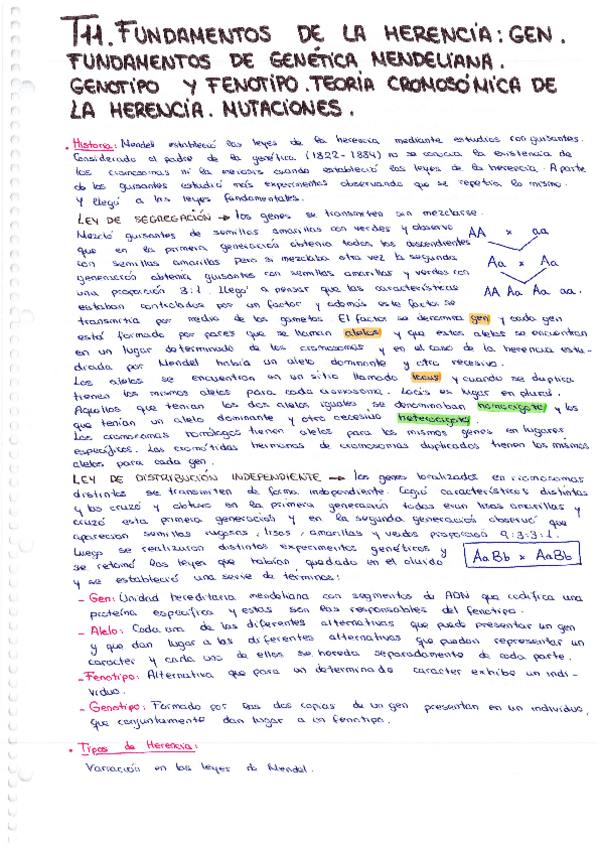 T11. FUNDAMENTOS DE LA HERENCIA: GEN.
FUNDAMENTOS DE GENÉTICA MENDELIANA.
GENOTIPO Y FENOTIPO. TEORIA CROMOSÓMICA DE
LA HERENCIA. MUTACIONES.
• Historia: Mendel estableció las leyes de la herencia mediante estudios con guisantes.
Considerado el padre de la genética (1822-1884) no se conocia la existencia de
los cromosomas ni la meiosis cuando estableció las leyes de la herencia. A parte
de los guisantes estudió más experimentos observando que se repetia lo mismo.
Y llegó a las leyes fundamentales.
LEY DE SEGREGACIÓN → los genes se transmiten sin mezclarse.
Mezcló guisantes de semillas amarillas con verdes y observó
que en la primera generación obtenia todos los descendientes
con semillas amarillas pero si mezclaba otra vez la segunda
generación obtenia guisantes con semillas amarillas y verdes con
una proporción 3:1. Llegó a pensar que las características
estaban controladas por un factor y además este factor se
transmitia por medio de los gametos. El factor se denomina gen y cada gen
está formado por pares que se llaman alelos y que estos alelos se encuentran
en un lugar determinado de los cromosomas y en el caso de la herencia estu-
diada por Mendel habia un alelo dominante y otro recesivo.
Los alelos se encuentran en un sitio llamado locus y cuando se duplica
tienen los mismos alelos para cada cromosoma. Locis es lugar en plural.
Aquellos que tenian los dos alelos iguales se denominaban homocigoto y los
que tenian un alelo dominante y otro recesivo heterocigoto.
Los cromosomas homólogos tienen alelos para los mismos genes en lugares
específicos. Las cromátidas hermanas de cromosomas duplicados tienen los mismos
alelos para cada gen.
AA × aa
Aa × Aa
AA Aa Aa aa.
LEY DE DISTRIBUCIÓN INDEPENDIENTE → los genes localizados en cromosomas
distintos se transmiten de forma independiente. Cogió características distintas
y las cruzó y obtuvo en la primera generación todas eran lisas amarillas y
cruzó esta primera generación y en la segunda generación observó que
aparecian semillas rugosas, lisas, amarillas y verdes proporción 9:3:3:1.
Luego se realizaron distintos experimentos genéticos y
se retomó las leyes que habian quedado en el olvido
y se estableció una serie de términos:
AaBb × AaBb
- Gen: Unidad hereditaria mendeliana con segmentos de ADN que codifica una
proteína específica y estas son las responsables del fenotipo.
- Alelo: Cada una de las diferentes alternativas que puede presentar un gen
y que dan lugar a las diferentes alternativas que puedan representar un
caracter y cada uno de ellos se hereda separadamente de cada parte.
- Fenotipo: Alternativa que para un determinado caracter exhibe un indi-
viduo.
- Genotipo: Formado por las dos copias de un gen presentan en un individuo,
que conjuntamente dan lugar a un fenotipo.
• Tipos de Herencia:
Variación en las leyes de Mendel.